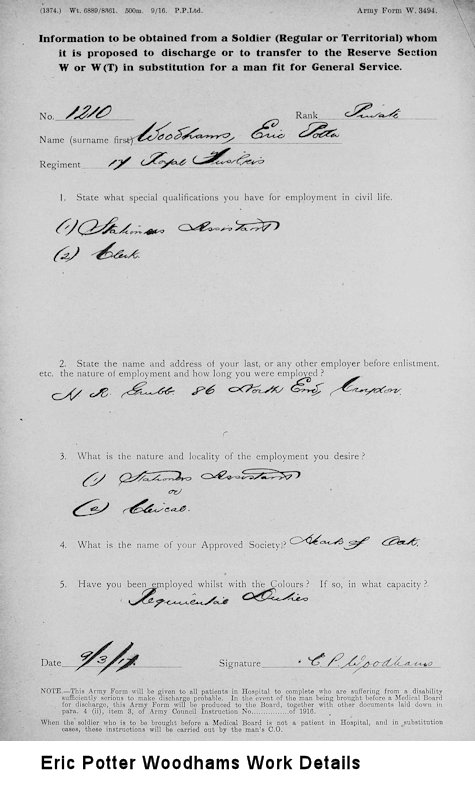 (1374.) Wt. 6889/8361. 500m. 9/16. P.P.Ltd. Army Form W. 3494.
Information to be obtained from a Soldier (Regular or Territorial) whom
it is proposed to discharge or to transfer to the Reserve Section
W or W(T) in substitution for a man fit for General Service.
No. 1210 Rank Private
Name (surname first) Woodhams, Eric Potter
Regiment 17 Royal Fusiliers
1. State what special qualifications you have for employment in civil life.
(1) Stationers Assistant
(2) Clerk.
2. State the name and address of your last, or any other employer before enlistment,
etc. the nature of employment and how long you were employed?
H R. Grubb. 86 North End, Croydon.
3. What is the nature and locality of the employment you desire?
(1) Stationers Assistant
or
(2) Clerical.
4. What is the name of your Approved Society? Hearts of Oak.
5. Have you been employed whilst with the Colours? If so, in what capacity?
Regimental Duties
Date 9/3/17. Signature E P. Woodhams
NOTE.—This Army Form will be given to all patients in Hospital to complete who are suffering from a disability
sufficiently serious to make discharge probable. In the event of the man being brought before a Medical Board
for discharge, this Army Form will be produced to the Board, together with other documents laid down in
para. 4 (ii), item 3, of Army Council Instruction No...............of 1916.
When the soldier who is to be brought before a Medical Board is not a patient in Hospital, and in substitution
cases, these instructions will be carried out by the man's C.O.
Eric Potter Woodhams Work Details